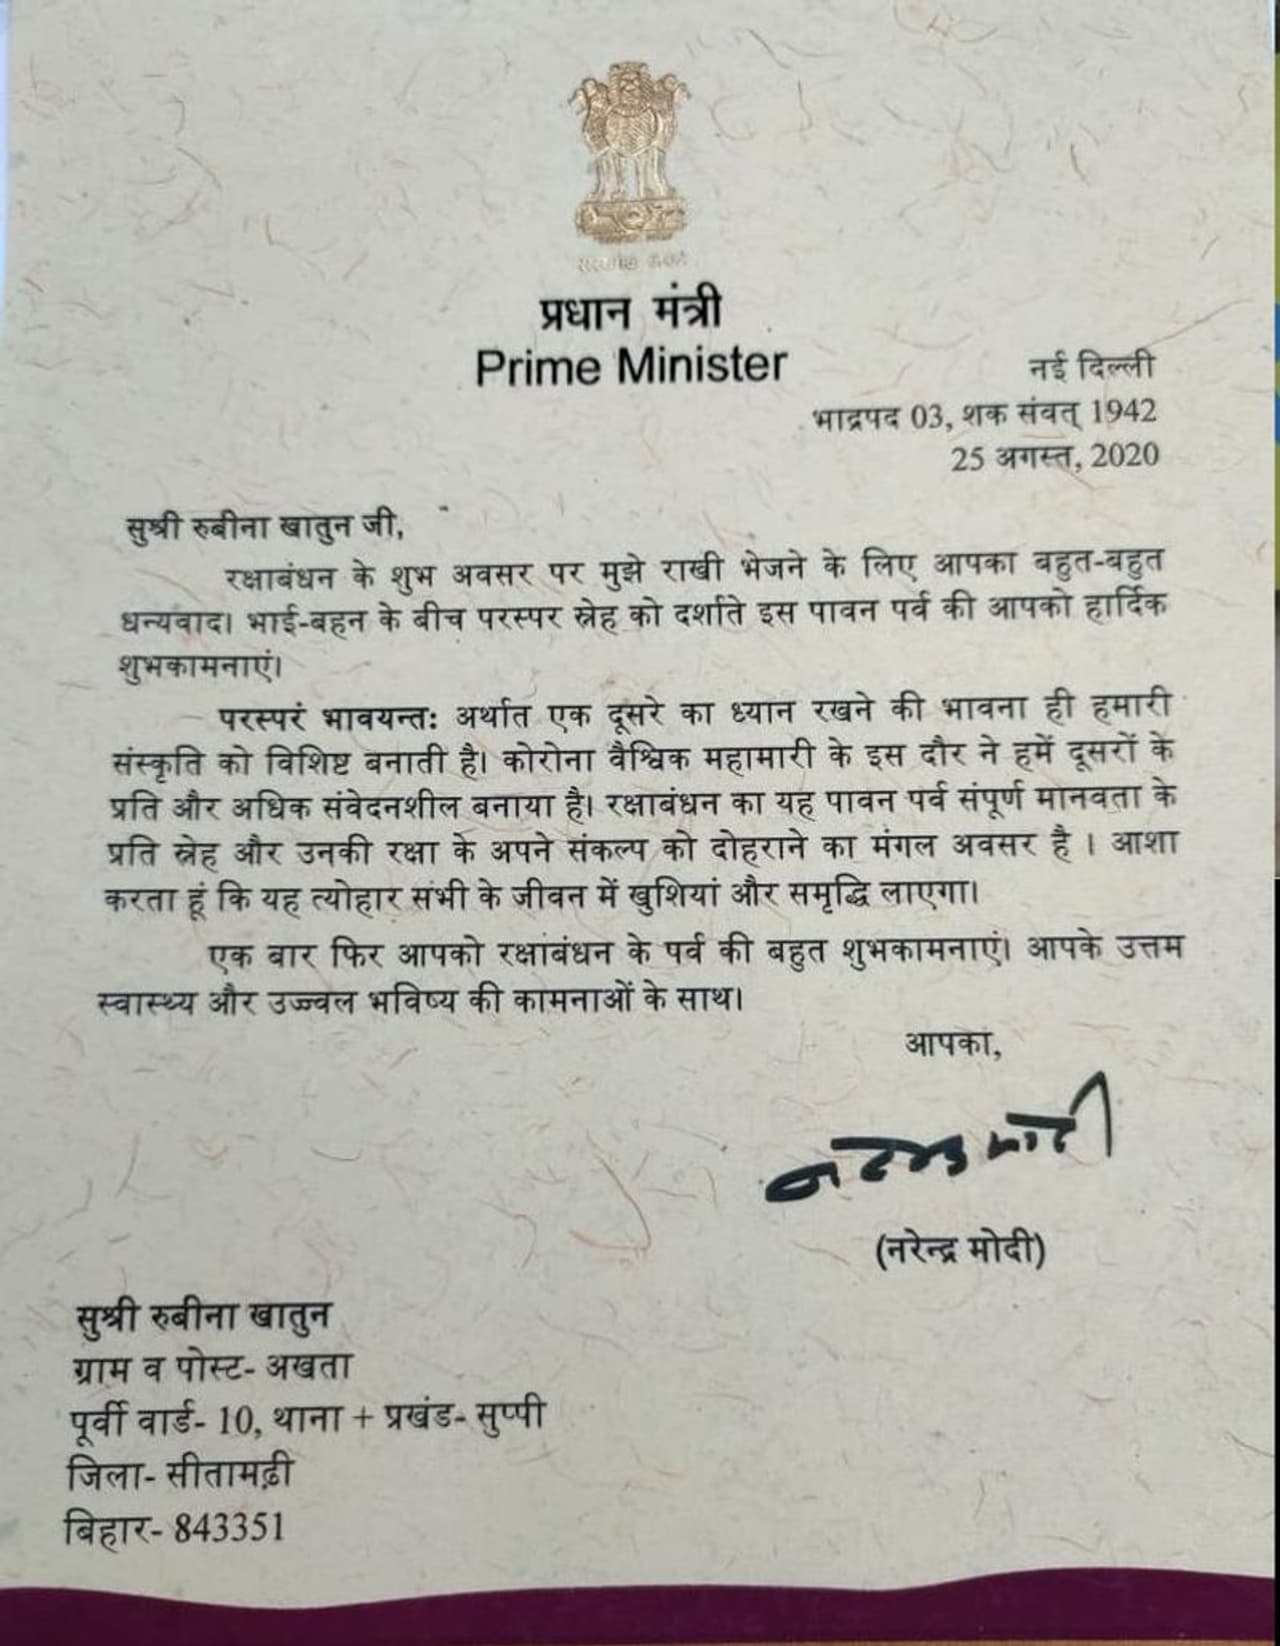 प्रधान मंत्री
Prime Minister
नई दिल्ली
भाद्रपद 03, शक संवत् 1942
25 अगस्त, 2020
सुश्री रुबीना खातुन जी,
रक्षाबंधन के शुभ अवसर पर मुझे राखी भेजने के लिए आपका बहुत-बहुत
धन्यवाद। भाई-बहन के बीच परस्पर स्नेह को दर्शाते इस पावन पर्व की आपको हार्दिक
शुभकामनाएं।
परस्परं भावयन्तः अर्थात एक दूसरे का ध्यान रखने की भावना ही हमारी
संस्कृति को विशिष्ट बनाती है। कोरोना वैश्विक महामारी के इस दौर ने हमें दूसरों के
प्रति और अधिक संवेदनशील बनाया है। रक्षाबंधन का यह पावन पर्व संपूर्ण मानवता के
प्रति स्नेह और उनकी रक्षा के अपने संकल्प को दोहराने का मंगल अवसर है । आशा
करता हूं कि यह त्योहार सभी के जीवन में खुशियां और समृद्धि लाएगा।
एक बार फिर आपको रक्षाबंधन के पर्व की बहुत शुभकामनाएं। आपके उत्तम
स्वास्थ्य और उज्ज्वल भविष्य की कामनाओं के साथ।
आपका,
नरेन्द्र मोदी
(नरेन्द्र मोदी)
सुश्री रुबीना खातुन
ग्राम व पोस्ट- अखता
पूर्वी वार्ड- 10, थाना + प्रखंड- सुप्पी
जिला- सीतामढ़ी
बिहार- 843351